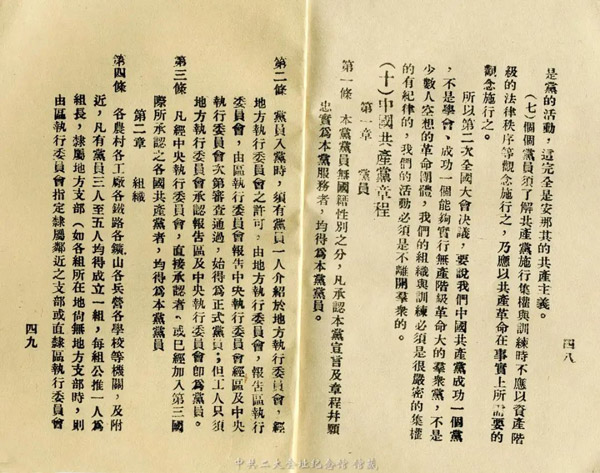 是黨的活動，這完全是安那其的共產主義。
（七）個個黨員須了解共產黨施行集權與訓練時不應以資產階
級的法律秩序等觀念施行之，乃應以共產革命在事實上所需要的
觀念施行之。
所以第二次全國大會決議，要說我們中國共產黨成功一個黨
，不是學會，成功一個能夠實行無產階級革命大的羣衆黨，不是
少數人空想的革命團體，我們的組織與訓練必須是很嚴密的集權
的有紀律的，我們的活動必須是不離開羣衆的。
（十）中國共產黨章程
第一章　黨員
第一條　本黨黨員無國籍性別之分，凡承認本黨宣言及章程幷願
忠實爲本黨服務者，均得爲本黨黨員。
四八
第二條　黨員入黨時，須有黨員一人介紹於地方執行委員會，經
地方執行委員會之許可，由地方執行委員會，報告區執行
委員會，由區執行委員會報告中央執行委員會經區及中央
執行委員會次第審查通過，始得爲正式黨員；但工人只須
地方執行委員會承認報告區及中央執行委員會卽爲黨員。
第三條　凡經中央執行委員會，直接承認者，或已經加入第三國
際所承認之各國共產黨者，均得爲本黨黨員
第二章　組織
第四條　各農村各工廠各鐵路各鑛山各兵營各學校等機關，及附
近，凡有黨員三人至五人均得成立一組，每組公推一人爲
組長，隸屬地方支部（如各組所在地尙無地方支部時，則
由區執行委員會指定隸屬鄰近之支部或直隸區執行委員會
四九
中共二大会址纪念馆 馆藏